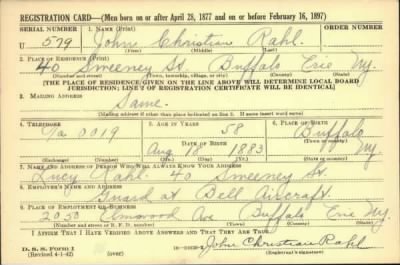 REGISTRATION CARD—(Men born on or after April 28, 1877 and on or before February 16, 1897)
SERIAL NUMBER 1. NAME (Print)
U 579 John Christian Rahl
(First) (Middle) (Last)
2. PLACE OF RESIDENCE (Print)
40 Sweeney St. Buffalo Erie N.Y.
(Number and street) (Town, township, village, or city) (County) (State)
[THE PLACE OF RESIDENCE GIVEN ON THE LINE ABOVE WILL DETERMINE LOCAL BOARD
JURISDICTION; LINE 2 OF REGISTRATION CERTIFICATE WILL BE IDENTICAL]
3. MAILING ADDRESS
Same.
[Mailing address if other than place indicated on line 2. If same insert word same]
4. TELEPHONE 5. AGE IN YEARS 6. PLACE OF BIRTH
0019 58 Buffalo
DATE OF BIRTH (Town or county)
Aug 18 1883 N.Y.
(Exchange) (Number) (Mo.) (Day) (Yr.) (State or country)
7. NAME AND ADDRESS OF PERSON WHO WILL ALWAYS KNOW YOUR ADDRESS
Lucy Rahl - 40 Sweeney St.
8. EMPLOYER'S NAME AND ADDRESS
Guard at Bell Aircraft.
9. PLACE OF EMPLOYMENT OR BUSINESS
2050 Elmwood Ave Buffalo Erie N.Y.
(Number and street or R. F. D. number) (Town) (County) (State)
I AFFIRM THAT I HAVE VERIFIED ABOVE ANSWERS AND THAT THEY ARE TRUE.
D. S. S. Form 1
(Revised 4-1-42) (over) John Christian Rahl
(Registrant's signature)